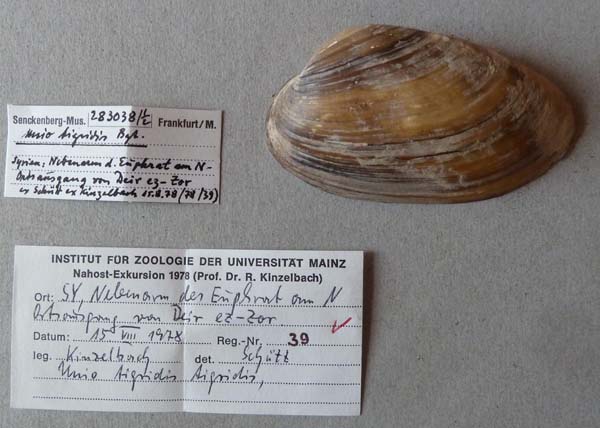 Senckenberg-Mus. 283038/2 Frankfurt/M.
Unio tigridis Bgt.
Syrien: Nebenarm d. Euphrat am N-
Ortsausgang von Deir ez-Zor
ex Schütt ex Kinzelbach 15.8.78 (78/39)
INSTITUT FÜR ZOOLOGIE DER UNIVERSITÄT MAINZ
Nahost-Exkursion 1978 (Prof. Dr. R. Kinzelbach)
Ort: SY, Nebenarm des Euphrat am N
Ortsausgang von Deir ez-Zor.
Datum: 15 VIII 1978 Reg.-Nr. 39
leg. Kinzelbach det. Schütt
Unio tigridis tigridis,